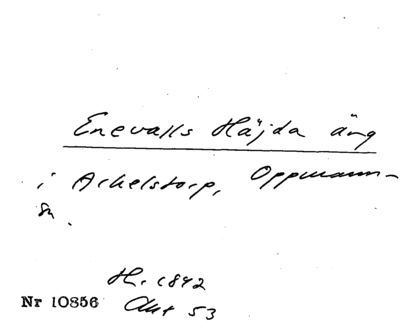 Enevalls Häjda äng
i Arkelstorp, Oppmann-
sn.
H. 1842
Akt 53
Nr 10856